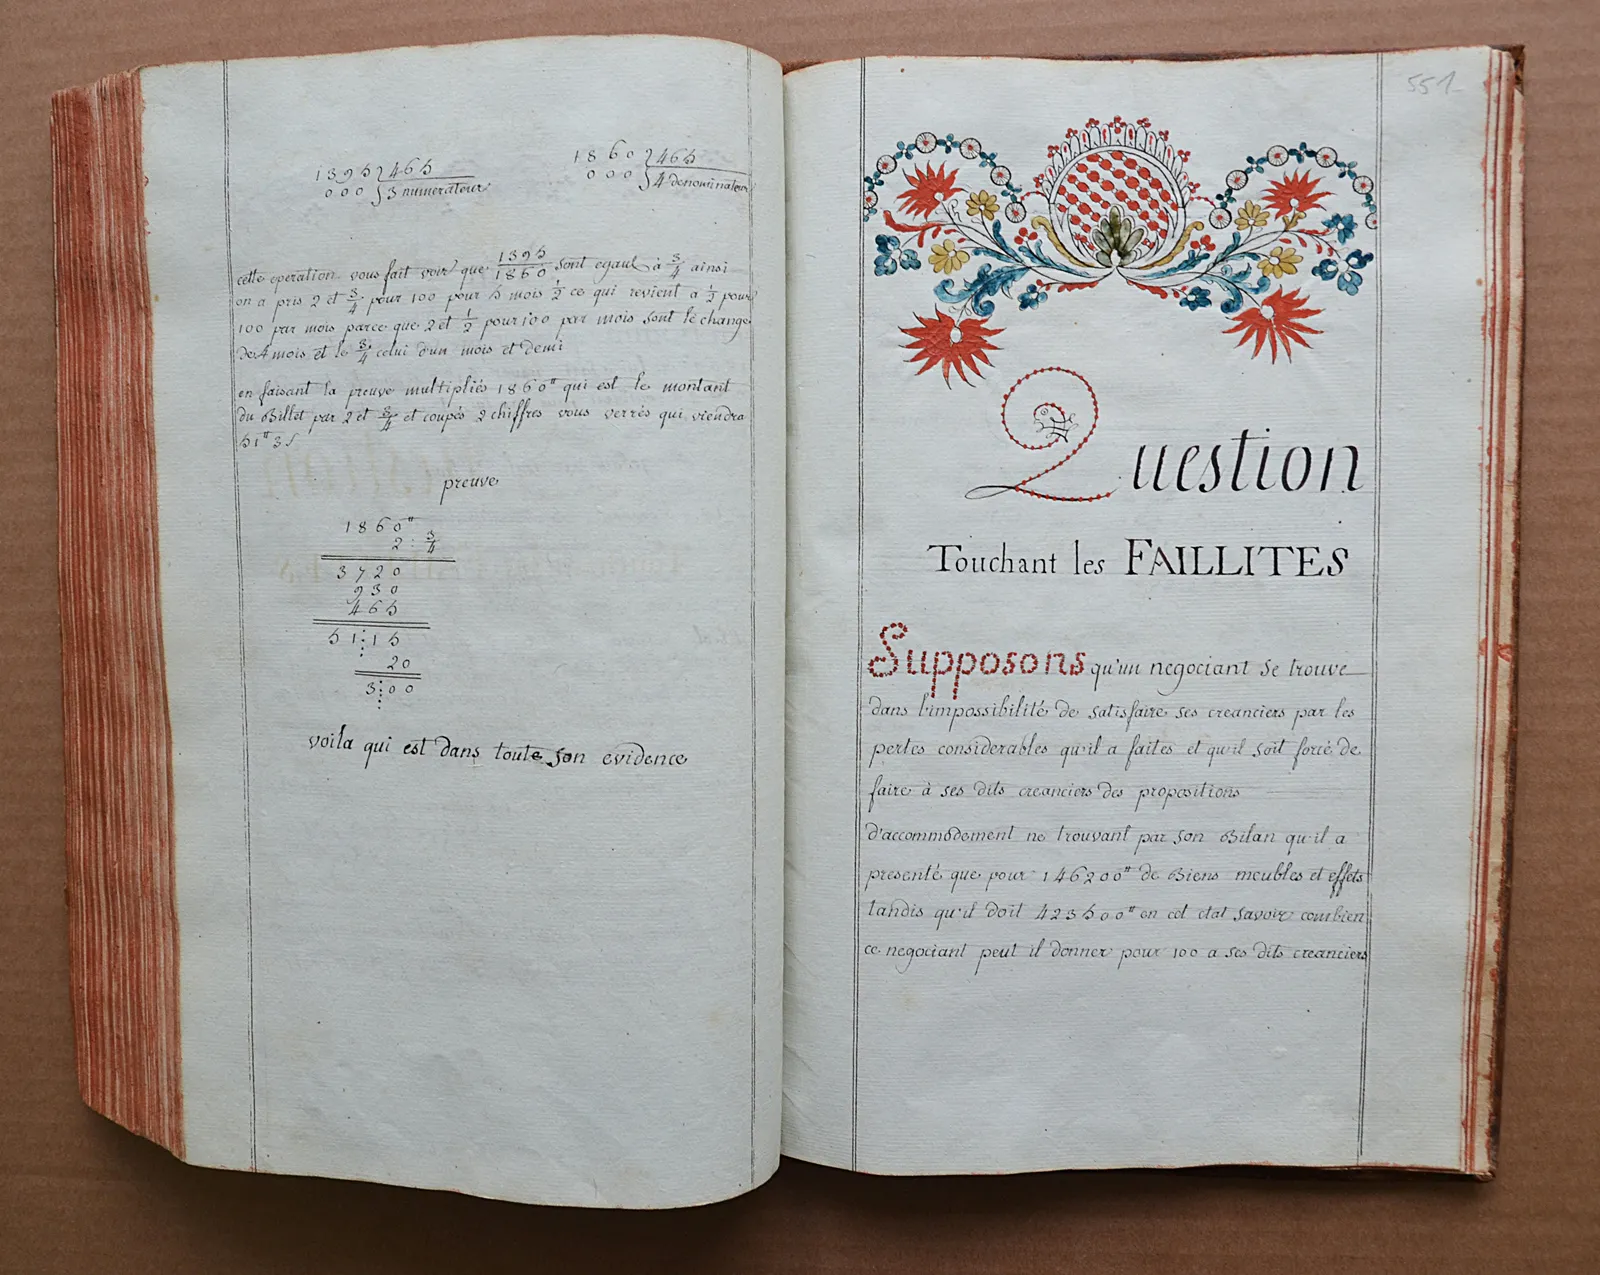 1395 465
000 3 numerateur
1860 465
000 4 denominateur
cette operation vous fait voir que 1395/1860 sont egaul à 3/4 ainsi
on a pris 2 et 3/4 pour 100 pour 5 mois 1/2 ce qui revient a 1/2 pour
100 par mois parce que 2 et 1/2 pour 100 par mois sont le change
de 4 mois et le 3/4 celui d'un mois et demi
en faisant la preuve multipliés 1860# qui est le montant
du Billet par 2 et 3/4 et coupés 2 chiffres vous verrés qui viendra
51# 3s
preuve
1860#
2 : 3/4
3720
930
465
51:15
20
3:00
voila qui est dans toute son evidence
551
Question
Touchant les FAILLITES
Supposons qu'un negociant se trouve
dans l'impossibilité de satisfaire ses creanciers par les
pertes considerables qu'il a faites et qu'il soit forcé de
faire à ses dits creanciers des propositions
d'accommodement ne trouvant par son Bilan qu'il a
presenté que pour 146200# de Biens meubles et effets
tandis qu'il doit 423500# en cet etat savoir combien
ce negociant peut il donner pour 100 a ses dits creanciers